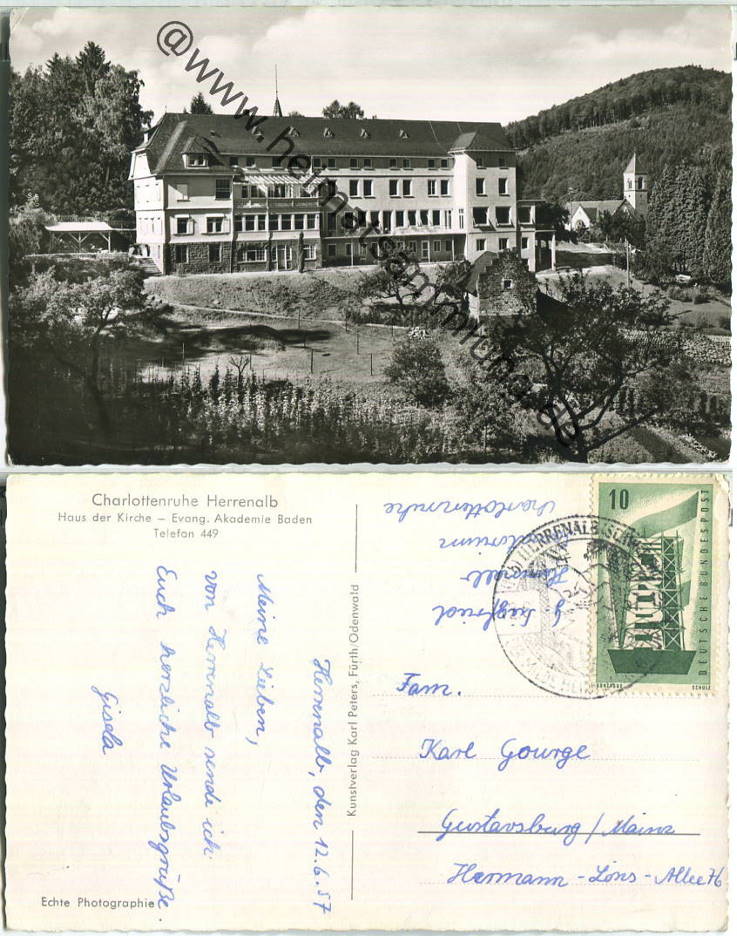 @www.heimatsammlung.de
Charlottenruhe Herrenalb
Haus der Kirche – Evang. Akademie Baden
Telefon 449
Herrenalb, den 12.6.57
Meine Lieben,
von Herrenalb sende ich
Euch herzliche Urlaubsgrüße.
Gisela
Echte Photographie
Kunstverlag Karl Peters, Fürth/Odenwald
Herrenalb-
Charlottenruhe
HERRENALB
10
DEUTSCHE BUNDESPOST
EUROPA
Fam.
Karl Gourge
Gustavsburg / Mainz
Hermann-Löns-Allee 76